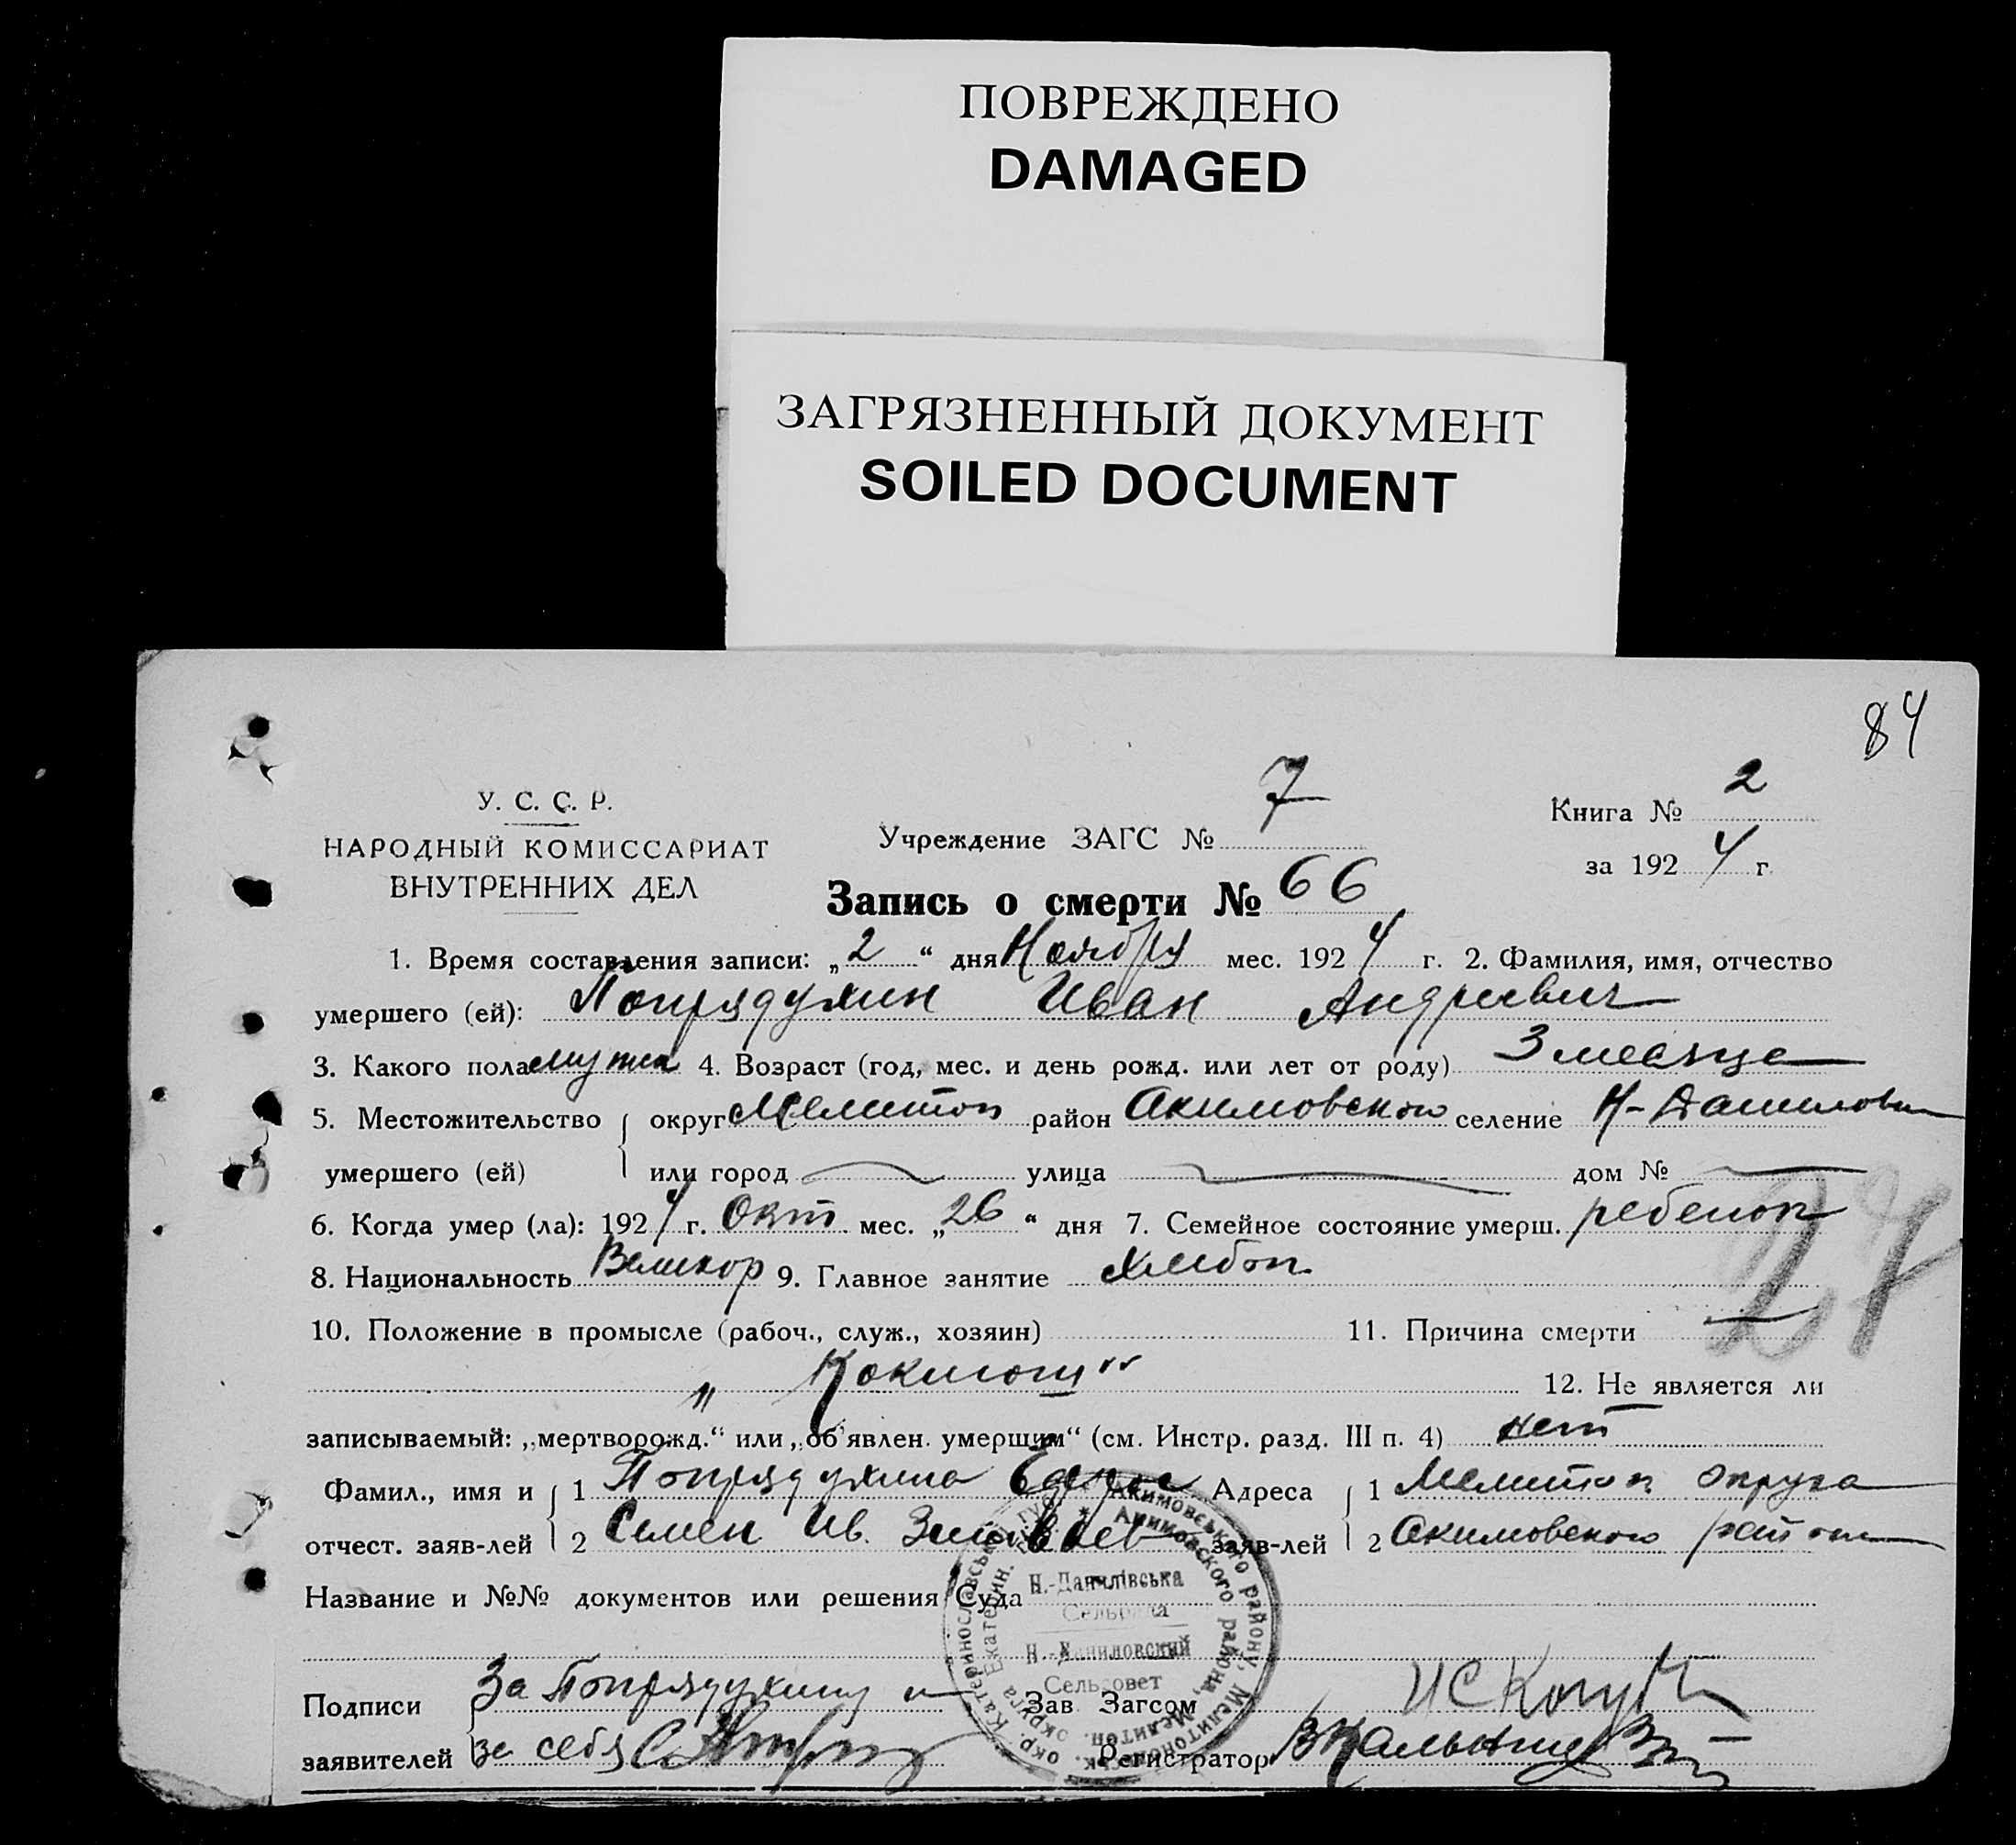 ПОВРЕЖДЕНО
DAMAGED
ЗАГРЯЗНЕННЫЙ ДОКУМЕНТ
SOILED DOCUMENT
84
У. С. С. Р.
НАРОДНЫЙ КОМИССАРИАТ
ВНУТРЕННИХ ДЕЛ
Учреждение ЗАГС № 7
Книга № 2
за 1924 г.
Запись о смерти № 66
1. Время составления записи: „2“ дня Ноября мес. 1924 г. 2. Фамилия, имя, отчество
умершего (ей): Попрядухин Иван Андреевич
3. Какого пола мужск 4. Возраст (год, мес. и день рожд. или лет от роду) 3 месяца
5. Местожительство округ Мелитоп район Акимовского селение Н-Даниловка
умершего (ей) или город улица дом №
6. Когда умер (ла): 1924 г. Окт мес. „26“ дня 7. Семейное состояние умерш. ребенок
8. Национальность Великор 9. Главное занятие хлебоп
10. Положение в промысле (рабоч., служ., хозяин) 11. Причина смерти
„Коклюш“ 12. Не является ли
записываемый: „мертворожд.“ или „об'явлен. умершим“ (см. Инстр. разд. III п. 4) нет
Фамил., имя и 1 Попрядухина Адреса 1 Мелитоп округа
отчест. заяв-лей 2 Семен Ив. заяв-лей 2 Акимовского района
Название и №№ документов или решения Суда
Н.-Данилівська
Сельрада
Н.-Даниловский
Сельсовет
Подписи За Попрядухину и Зав Загсом
заявителей за себя Регистратор